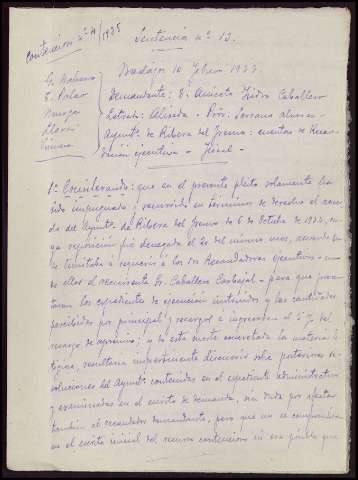 Contencioso nº 4/1935
Sentencia nº 13.
Badajoz 10 febrero 1937.
Demandante: D. Aniceto Isidro Caballero
Letrado: Proc. Serrano
Ayunt. de Ribera del Fresno: cuentas de Recau-
dación ejecutiva.
1º Considerando: que en el presente pleito solamente ha
sido impugnado y recurrido en términos de derecho el acuer-
do del Ayunt. de Ribera del Fresno de 6 de Octubre de 1934, cu-
ya reposición fué denegada el 20 del mismo mes, acuerdo que
se limitaba a requerir a los dos Recaudadores ejecutivos - uno
de ellos el recurrente Sr. Caballero Carbajal - para que presen-
taran los expedientes de ejecución instruidos y las cantidades
percibidas por principal y recargos e ingresaran el 5 % del
recargo de apremio; y de esta suerte concretada la materia li-
tigiosa, resultaría impertinente discurrir sobre posteriores re-
soluciones del Ayunt. contenidas en el expediente administrativo
y examinadas en el escrito de demanda, sin duda por afectar
también al recaudador demandante, pero que no se comprendían
en el escrito inicial del recurso contencioso ni era posible que